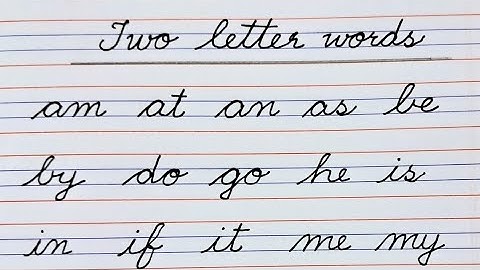 Two letter words
am at an as be
by do go he is
in if it me my